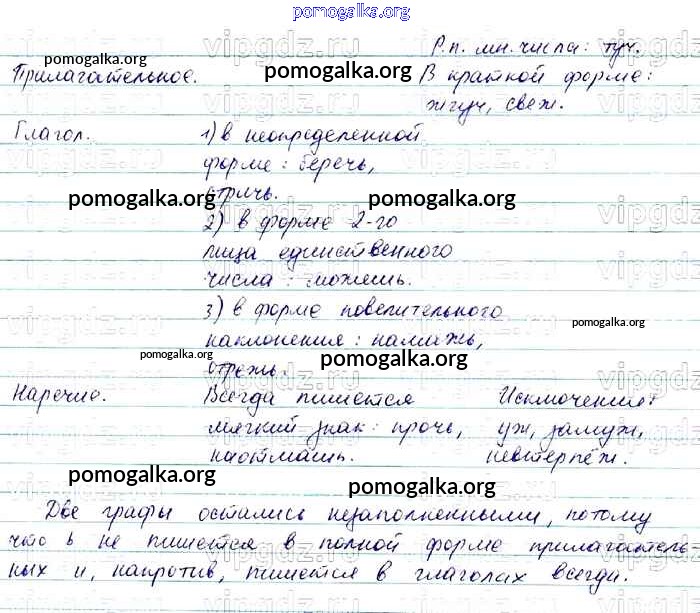 pomogalka.org
Р.п. мн. числа: туч.
pomogalka.org
pomogalka.org
Прилагательное. В краткой форме:
жгуч, свеж.
Глагол. 1) в неопределенной
форме: беречь,
стричь.
pomogalka.org pomogalka.org
2) в форме 2-го
лица единственного
числа: можешь.
3) в форме повелительного
pomogalka.org
наклонения: намажь,
pomogalka.org pomogalka.org
отрежь.
Наречие. Всегда пишется Исключения:
мягкий знак: прочь, уж, замуж,
наотмашь. невтерпёж.
pomogalka.org pomogalka.org
Две графы остались незаполненными, потому
что ь не пишется в полной форме прилагатель-
ных и, напротив, пишется в глаголах всегда.